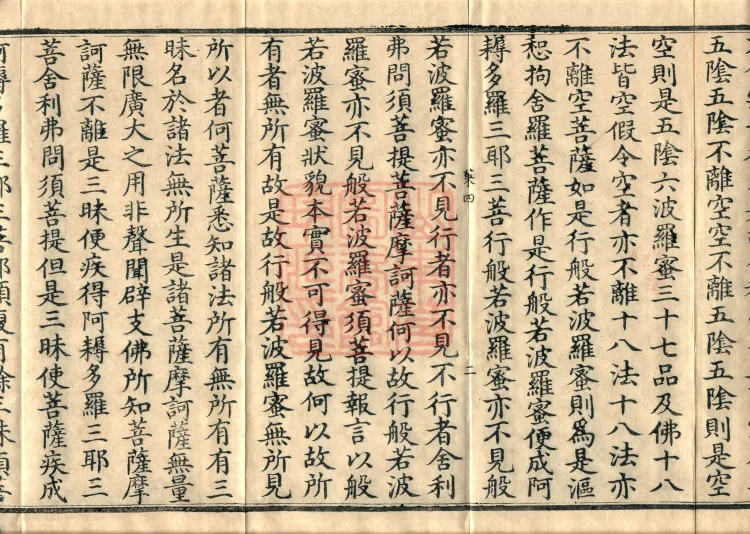 五陰五陰不離空空不離五陰五陰則是空
空則是五陰六波羅蜜三十七品及佛十八
法皆空假令空者亦不離十八法十八法亦
不離空菩薩如是行般若波羅蜜則爲是漚
惒拘舍羅菩薩作是行般若波羅蜜便成阿
耨多羅三耶三菩行般若波羅蜜亦不見般
菜四 二
若波羅蜜亦不見行者亦不見不行者舍利
弗問須菩提菩薩摩訶薩何以故行般若波
羅蜜亦不見般若波羅蜜須菩提報言以般
若波羅蜜狀貌本實不可得見故何以故所
有者無所有故是故行般若波羅蜜無所見
所以者何菩薩悉知諸法所有無所有有三
昧名於諸法無所生是諸菩薩摩訶薩無量
無限廣大之用非聲聞辟支佛所知菩薩摩
訶薩不離是三昧便疾得阿耨多羅三耶三
菩舍利弗問須菩提但是三昧使菩薩疾成